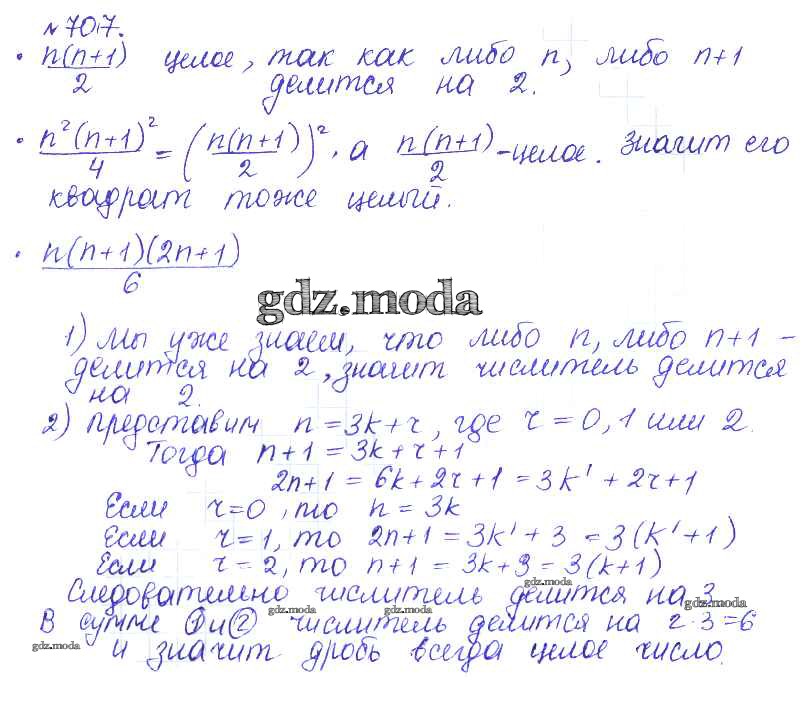 № 707.
• n(n+1)/2 целое, так как либо n, либо n+1
делится на 2.
• n²(n+1)²/4 = (n(n+1)/2)², а n(n+1)/2 - целое. Значит его
квадрат тоже целый.
• n(n+1)(2n+1)/6
gdz.moda
1) Мы уже знаем, что либо n, либо n+1 -
делится на 2, значит числитель делится
на 2.
2) Представим n = 3k + r, где r = 0, 1 или 2.
Тогда n+1 = 3k + r + 1
2n+1 = 6k + 2r + 1 = 3k' + 2r + 1
Если r = 0, то n = 3k
Если r = 1, то 2n+1 = 3k' + 3 = 3(k'+1)
Если r = 2, то n+1 = 3k+3 = 3(k+1)
gdz.moda
Следовательно числитель делится на 3
gdz.moda gdz.moda gdz.moda
В сумме ① и ② числитель делится на 2·3=6
gdz.moda
и значит дробь всегда целое число.